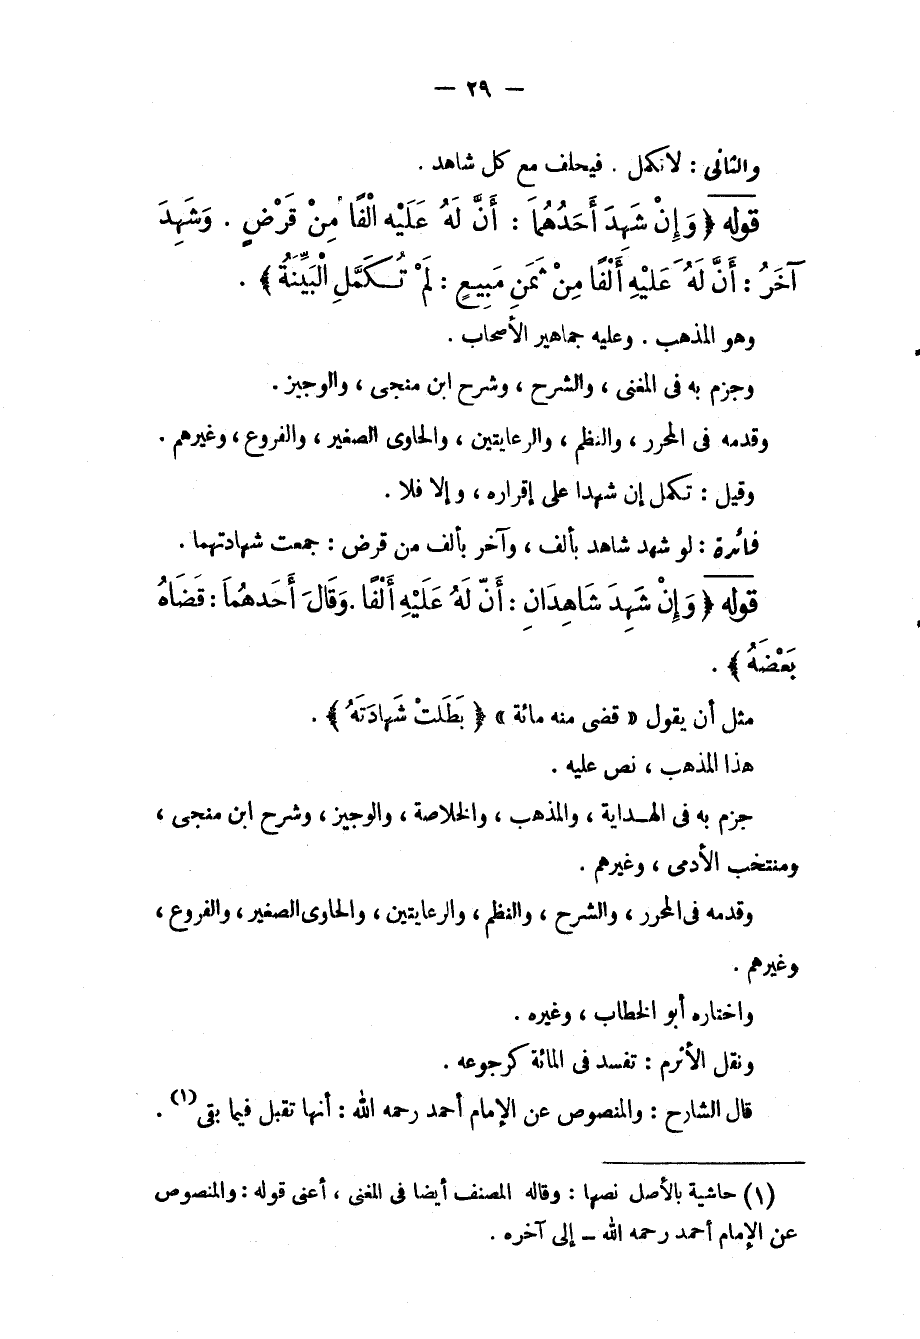 — ٢٩ —
والثانى : لا تكمل . فيحلف مع كل شاهد .
قوله ﴿ وَإِنْ شَهِدَ أَحَدُهُمَا : أَنَّ لَهُ عَلَيْهِ أَلْفًا مِنْ قَرْضٍ . وَشَهِدَ
آخَرُ : أَنَّ لَهُ عَلَيْهِ أَلْفًا مِنْ ثَمَنِ مَبِيعٍ : لَمْ تُكَمَّلِ الْبَيِّنَةُ ﴾ .
وهو المذهب . وعليه جماهير الأصحاب .
وجزم به فى المغنى ، والشرح ، وشرح ابن منجى ، والوجيز .
وقدمه فى المحرر ، والنظم ، والرعايتين ، والحاوى الصغير ، والفروع ، وغيرهم .
وقيل : تكمل إن شهدا على إقراره ، وإلا فلا .
فائدة : لو شهد شاهد بألف ، وآخر بألف من قرض : جمعت شهادتهما .
قوله ﴿ وَإِنْ شَهِدَ شَاهِدَانِ : أَنَّ لَهُ عَلَيْهِ أَلْفًا . وَقَالَ أَحَدهُمَا : قَضَاهُ
بَعْضَهُ ﴾ .
مثل أن يقول « قضى منه مائة » ﴿ بَطَلَتْ شَهَادَتَهُ ﴾ .
هذا المذهب ، نص عليه .
جزم به فى الهـداية ، والمذهب ، والخلاصة ، والوجيز ، وشرح ابن منجى ،
ومنتخب الأدمى ، وغيرهم .
وقدمه فى المحرر ، والشرح ، والنظم ، والرعايتين ، والحاوى الصغير ، والفروع ،
وغيرهم .
واختاره أبو الخطاب ، وغيره .
ونقل الأثرم : تفسد فى المائة كرجوعه .
قال الشارح : والمنصوص عن الإمام أحمد رحمه الله : أنها تقبل فيما بقى (١) .
(١) حاشية بالأصل نصها : وقاله المصنف أيضا فى المغنى ، أعنى قوله : والمنصوص
عن الإمام أحمد رحمه الله – إلى آخره .